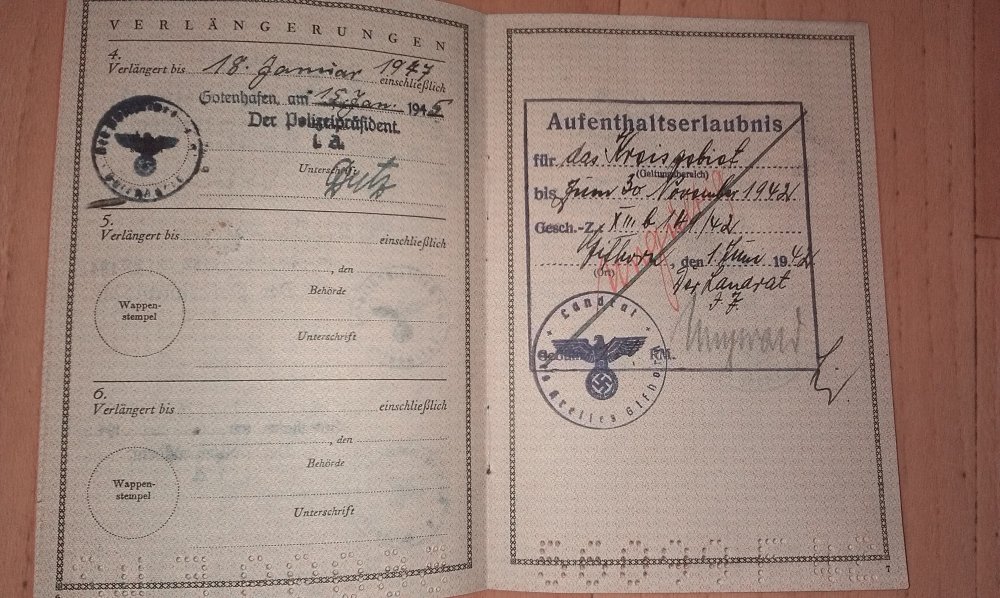 VERLÄNGERUNGEN
4.
Verlängert bis 18. Januar 1947
einschließlich
Gotenhafen, am 15. Jan. 194
Der Polizeipräsident.
Unterschrift
5.
Verlängert bis einschließlich
, den
Behörde
Wappen-
stempel
Unterschrift
6.
Verlängert bis einschließlich
, den
Behörde
Wappen-
stempel
Unterschrift
6
Aufenthaltserlaubnis
für das Kreisgebiet
(Geltungsbereich)
bis zum 30 November 1942
Gesch.-Z. XIII b 141/42
Gifhorn, den 1. Juni 1942
(Ort)
Der Landrat
Landrat
Gebühr RM.
des Kreises Gifhorn
7